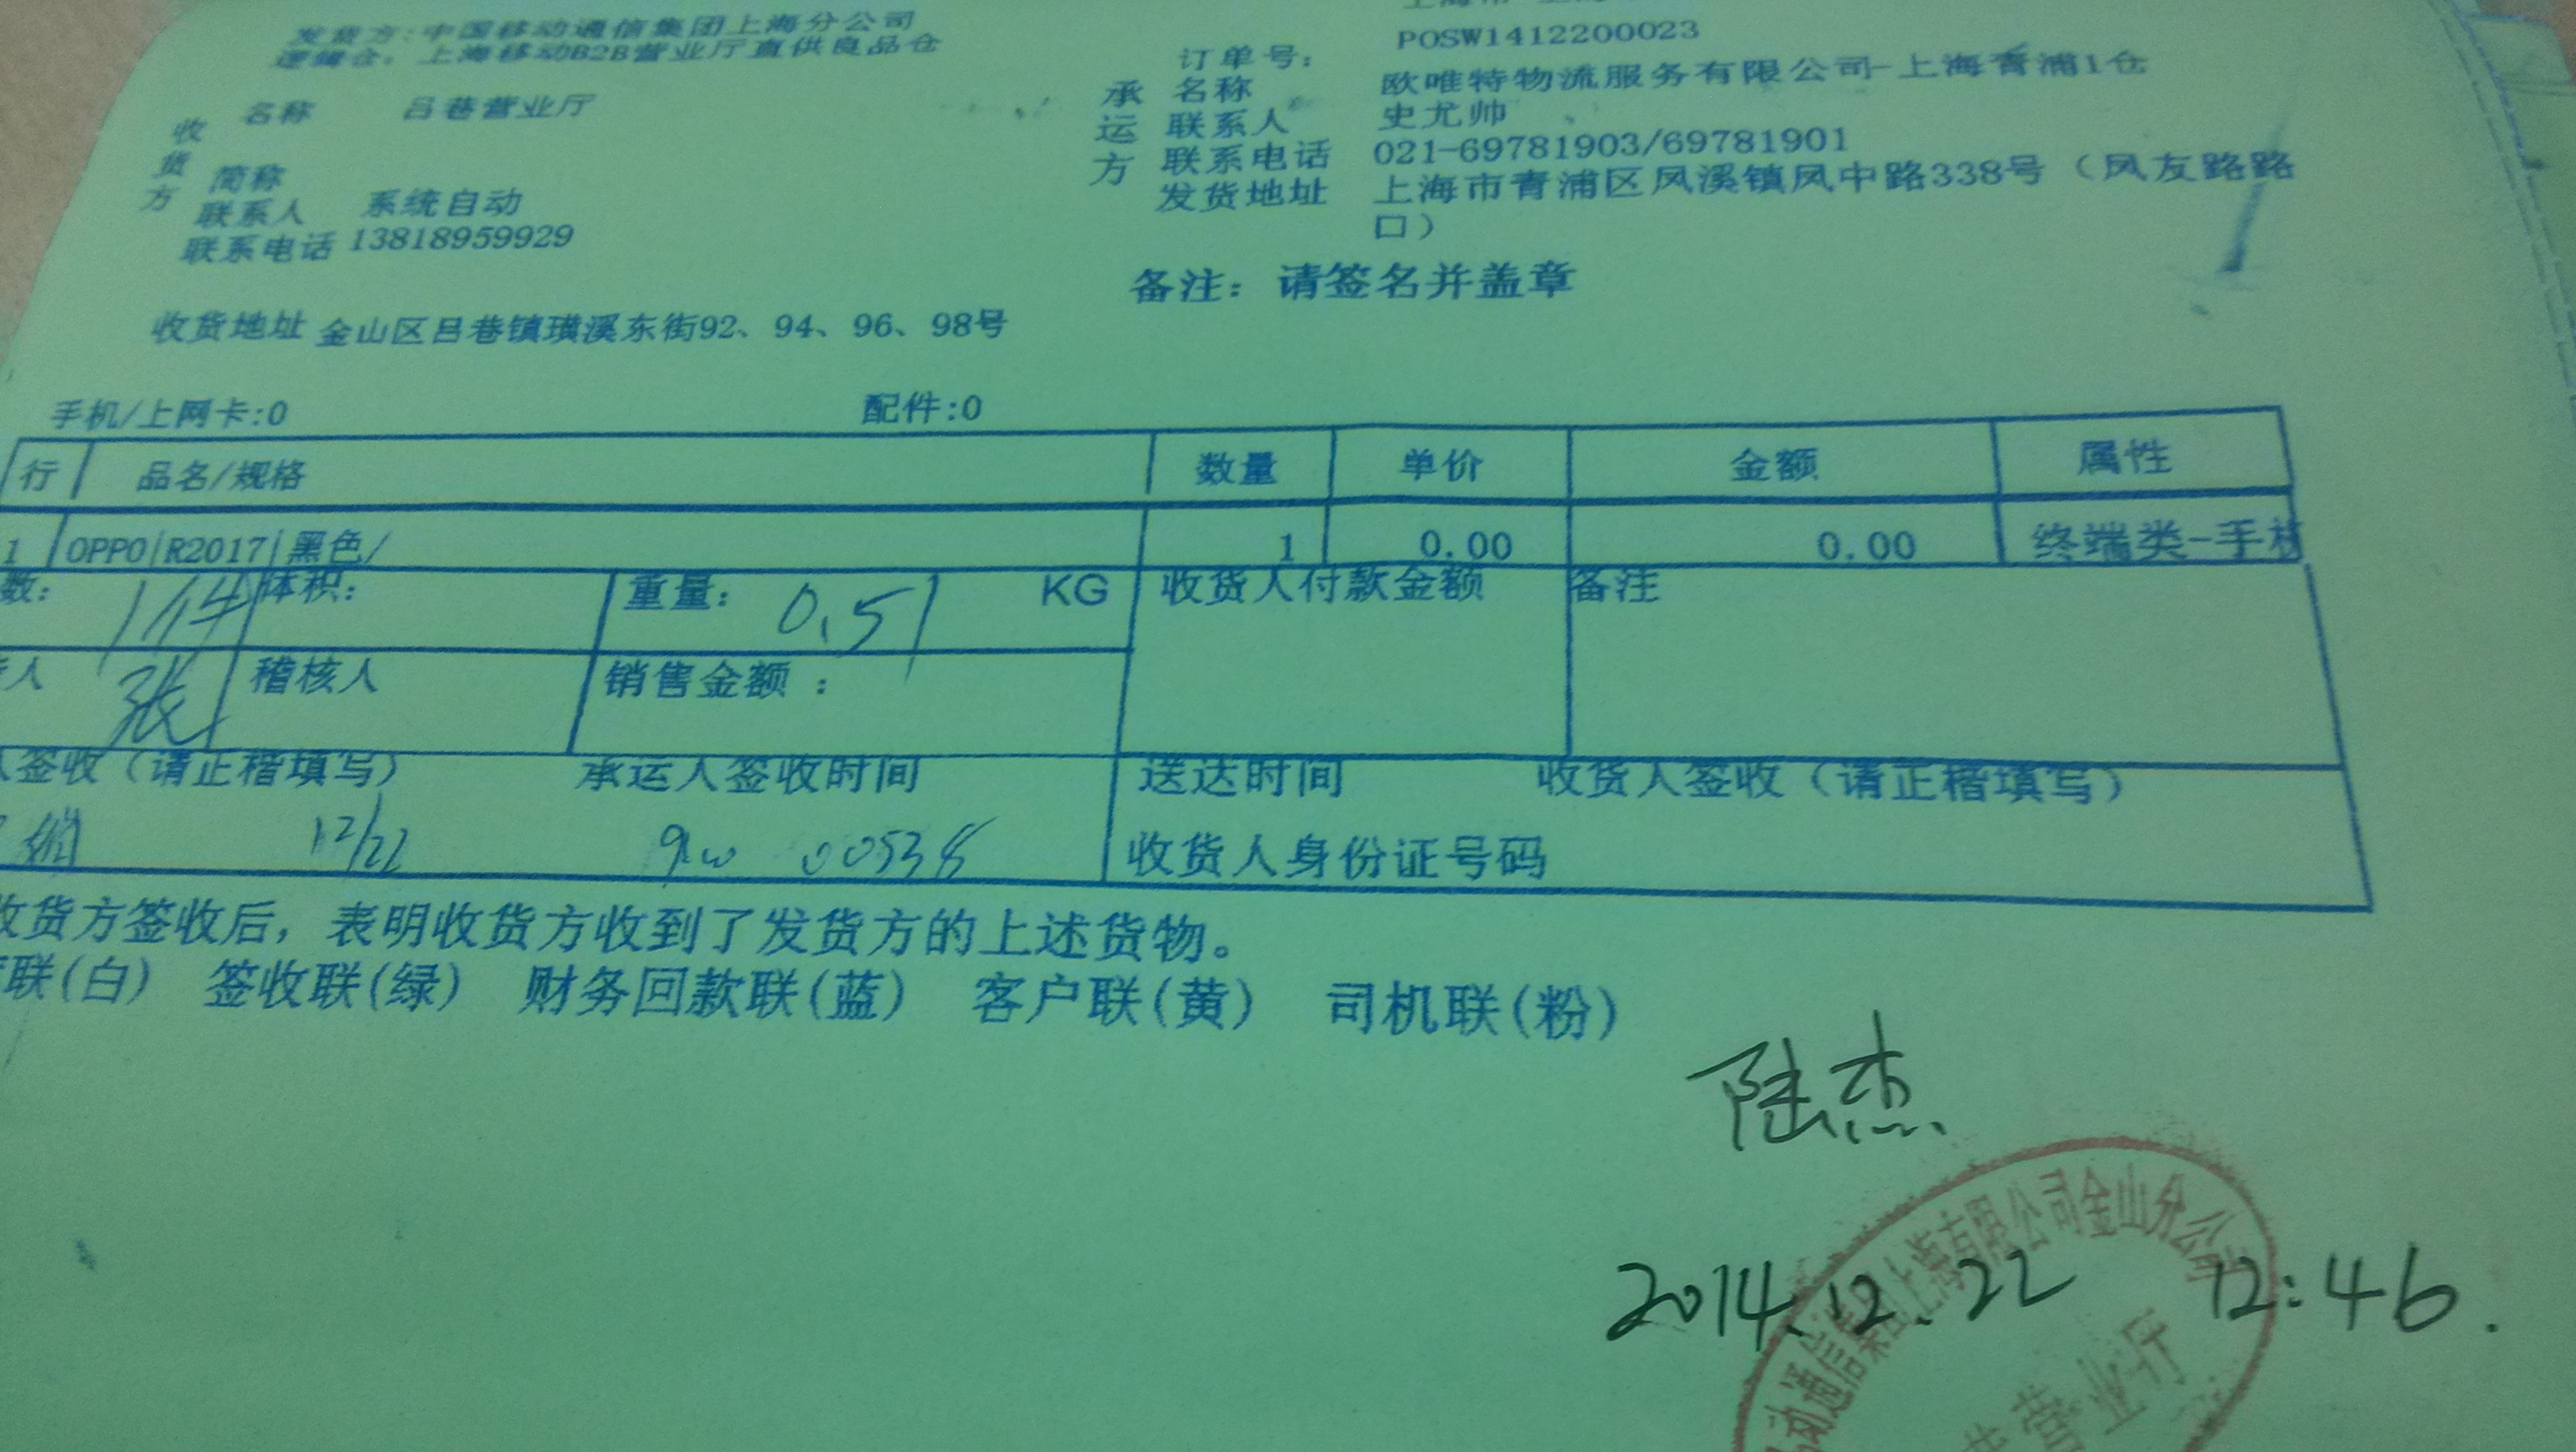 发货方:中国移动通信集团上海分公司
逻辑仓: 上海移动B2B营业厅直供良品仓
收货方
名称 吕巷营业厅
简称
联系人 系统自动
联系电话 13818959929
收货地址 金山区吕巷镇璜溪东街92、94、96、98号
订单号: POSW1412200023
承运方
名称 欧唯特物流服务有限公司-上海青浦1仓
联系人 史尤帅
联系电话 021-69781903/69781901
发货地址 上海市青浦区凤溪镇凤中路338号（凤友路路
口）
备注: 请签名并盖章
手机/上网卡:0 配件:0
行 品名/规格 数量 单价 金额 属性
1 OPPO|R2017|黑色/ 1 0.00 0.00 终端类-手机
数: 1件 体积: 重量: 0.5 KG 收货人付款金额 备注
人 张 稽核人 销售金额 :
签收（请正楷填写） 承运人签收时间 送达时间 收货人签收（请正楷填写）
12/22 00538
收货人身份证号码
收货方签收后, 表明收货方收到了发货方的上述货物。
联(白) 签收联(绿) 财务回款联(蓝) 客户联(黄) 司机联(粉)
陆杰
2014.12.22 12:46.
动通信集团上海有限公司金山分公司
巷营业厅